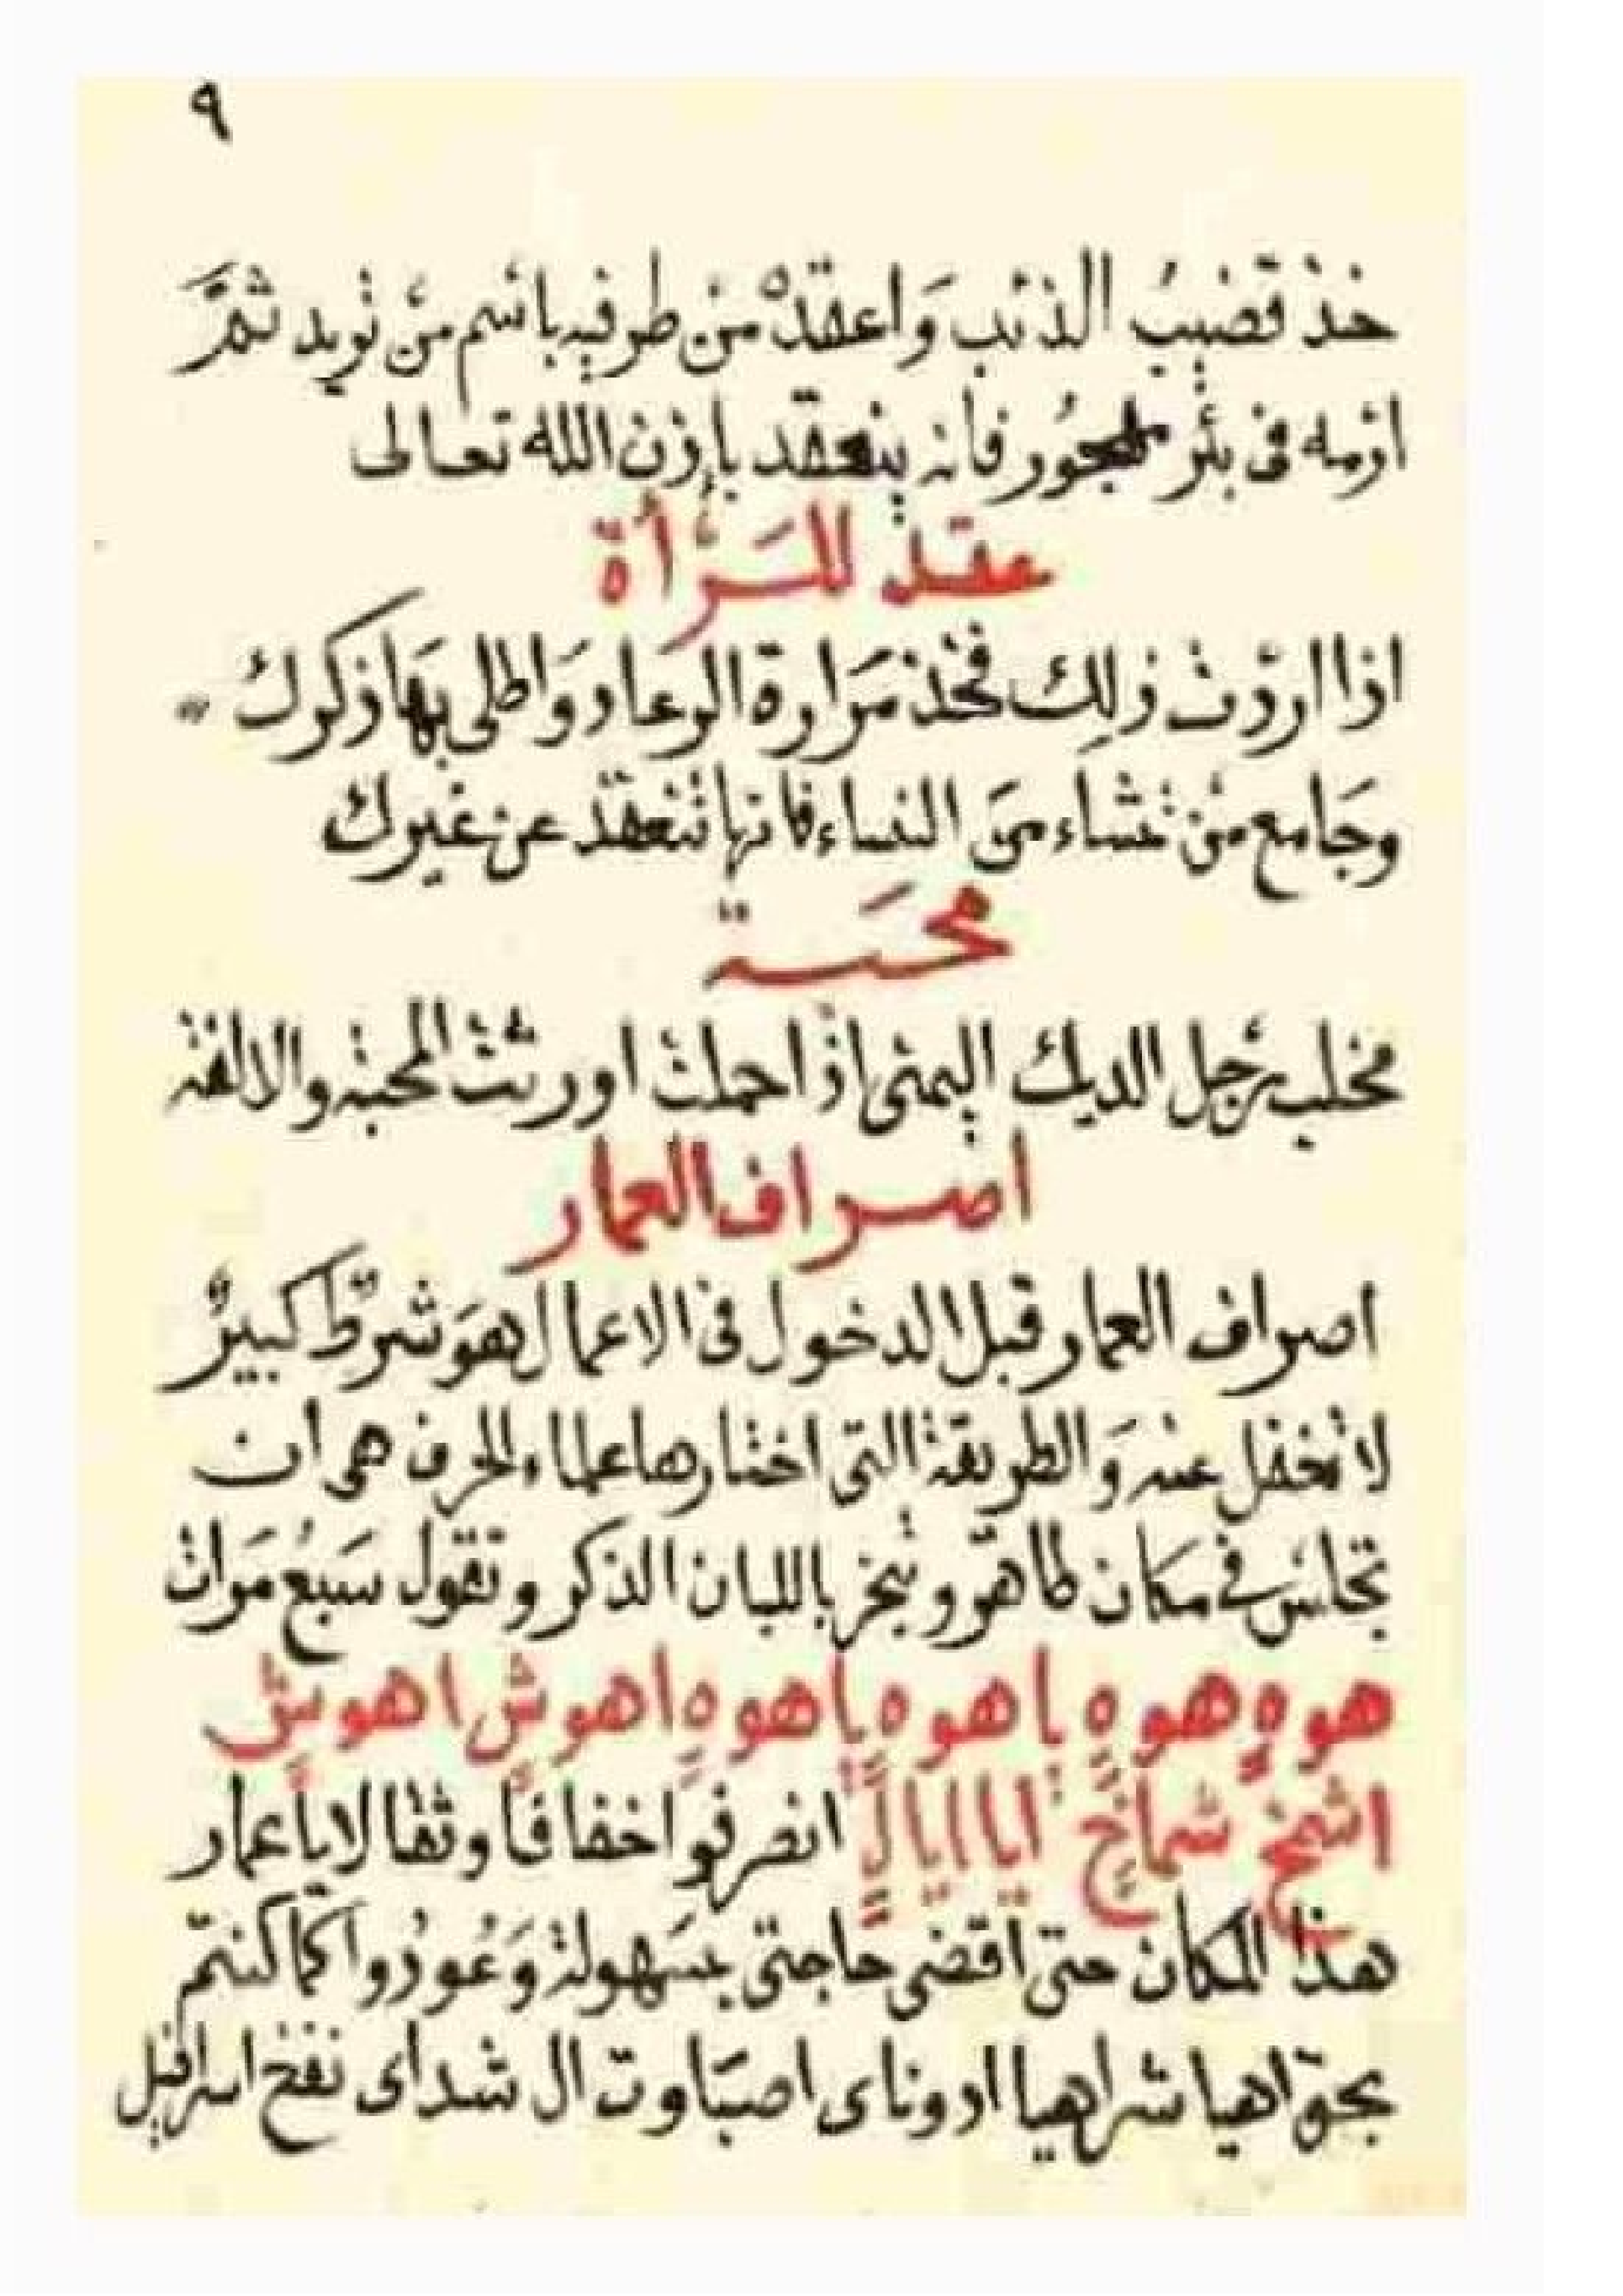 ٩
خذ قضيبُ الذئب وَاعقدْ مِنْ طرفيه باسم منْ تريد ثمَّ
ارمه فى بئر مهجُور فانه ينعقد بإذن الله تعالى
عقد للمَرْأة
اذا اردْت ذلك فخذ مَرارة الرعاد وَاطلى بهَا ذكرك
وجَامع منْ تشاء منَ النساء فانها تنعقد عن غيرك
محَبة
مخلب رجل الديك اليمنى اذا حملت اورثت المحبة والالفة
اصراف العمار
اصراف العمار قبل الدخول فى الاعمال هوَ شرطٌ كبيرٌ
لا تغفل عنه وَالطريقة التى اختارها علماء الحرف هى أن
تجلسْ فى مكان طاهر وتبخر باللبان الذكر وتقول سَبعُ مَرات
هوهٍ هوهٍ ياهوهٍ ياهوهٍ اهوشٍ اهوشٍ
اشمخ شماخٍ ايا ايا ايالٍ انصرفوا خفافاً وثقالا ياعمار
هذا المكان حتى اقضى حاجتى بسَهولة وَعُودُوا كما كنتم
بحق اهيا شراهيا ادوناى اصبَاوت ال شداى نفخ اسرافيل